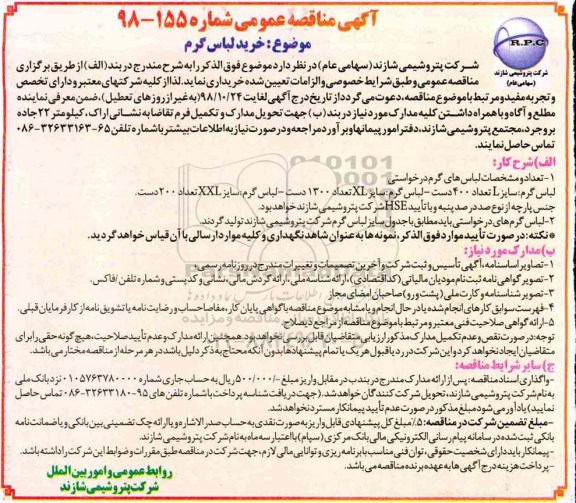 آگهی مناقصه عمومی شماره ۱۵۵-۹۸
موضوع: خرید لباس گرم
R.P.C
شرکت پتروشیمی شازند
(سهامی عام)
شرکت پتروشیمی شازند (سهامی عام) در نظر دارد موضوع فوق الذکر را به شرح مندرج در بند (الف) از طریق برگزاری
مناقصه عمومی و طبق شرایط خصوصی و الزامات تعیین شده خریداری نماید. لذا از کلیه شرکتهای معتبر و دارای تخصص
و تجربه مفید و مرتبط با موضوع مناقصه، دعوت می گردد از تاریخ درج آگهی لغایت ۹۸/۱۰/۲۴ (به غیر از روزهای تعطیل)، ضمن معرفی نماینده
مطلع و آگاه و با همراه داشتن کلیه مدارک مورد نیاز در بند (ب) جهت تحویل مدارک و تکمیل فرم تقاضا به نشانی اراک، کیلومتر ۲۲ جاده
بروجرد، مجتمع پتروشیمی شازند، دفتر امور پیمانها و برآورد مراجعه و در صورت نیاز به اطلاعات بیشتر با شماره تلفن ۶۵-۳۲۶۳۳۱۶۳-۰۸۶
تماس حاصل نمایند.
الف) شرح کار:
۱- تعداد و مشخصات لباس های گرم درخواستی:
لباس گرم: سایز L تعداد ۴۰۰ دست - لباس گرم: سایز XL تعداد ۱۳۰۰ دست - لباس گرم: سایز XXL تعداد ۲۰۰ دست.
جنس پارچه از نوع صد در صد پنبه و با تأیید HSE شرکت پتروشیمی شازند خواهد بود.
۲- لباس گرم های درخواستی باید مطابق با جدول سایز لباس گرم شرکت پتروشیمی شازند تولید گردند.
* نکته: در صورت تأیید موارد فوق الذکر، نمونه ها به عنوان شاهد نگهداری و کلیه موارد ارسالی با آن قیاس خواهد گردید.
ب) مدارک مورد نیاز:
۱- تصاویر اساسنامه، آگهی تأسیس و ثبت شرکت و آخرین تصمیمات و تغییرات مندرج در روزنامه رسمی
۲- تصویر گواهی نامه ثبت نام مودیان مالیاتی (کد اقتصادی)، ارائه شناسه ملی، ارائه گردش مالی، نشانی و کد پستی و شماره تلفن/فاکس.
۳- تصویر شناسنامه و کارت ملی (پشت و رو) صاحبان امضای مجاز
۴- فهرست سوابق کارهای انجام شده یا در حال انجام و یا مشابه موضوع مناقصه با گواهی پایان کار، مفاصا حساب و رضایت نامه یا تشویق نامه از کارفرمایان قبلی.
۵- ارائه گواهی صلاحیت فنی معتبر و مرتبط با موضوع مناقصه از مراجع ذیصلاح.
توجه: در صورت نقص و عدم تکمیل مدارک مذکور ارزیابی متقاضیان قابل بررسی نخواهد بود همچنین ارائه مدارک و عدم تأیید صلاحیت، هیچ گونه حقی را برای
متقاضیان ایجاد نخواهد کرد و این شرکت در رد یا قبول هر یک یا تمام پیشنهادها بدون آنکه محتاج به ذکر دلیل باشد در هر مرحله از مناقصه مختار می باشد.
ج) سایر شرایط مناقصه:
- واگذاری اسناد مناقصه: پس از ارائه مدارک مندرج در بند ب در مقابل واریز مبلغ -/۵۰۰/۰۰۰ ریال به حساب جاری شماره ۰۱۰۵۷۶۳۷۸۰۰۰۰ نزد بانک ملی
به نام شرکت پتروشیمی شازند، تحویل شرکت کنندگان خواهد شد. (جهت دریافت شناسه پرداخت با شماره تلفن های ۹۵-۳۲۶۳۳۱۸۰-۰۸۶ تماس حاصل
نمایید) یادآور می شود مبلغ مذکور در صورت عدم تأیید پیمانکار مسترد نخواهد شد.
- مبلغ تضمین شرکت در مناقصه: ۵٪ مبلغ کل پیشنهادی قابل واریز به صورت نقدی به حساب صدر الاشاره و یا ارائه چک تضمینی بین بانکی و یا ضمانت نامه
بانکی ثبت شده در سامانه پیام رسانی الکترونیکی مالی بانک مرکزی (سپام) با اعتبار سه ماه به نام شرکت پتروشیمی شازند.
- پیمانکار باید دارای شخصیت حقوقی، توان فنی مناسب با برنامه ریزی و توانایی مالی لازم، جهت شرکت در مناقصه طبق مقررات و ضوابط این شرکت را داشته باشد.
- پرداخت هزینه درج آگهی ها به عهده برنده مناقصه می باشد.
روابط عمومی و امور بین الملل
شرکت پتروشیمی شازند